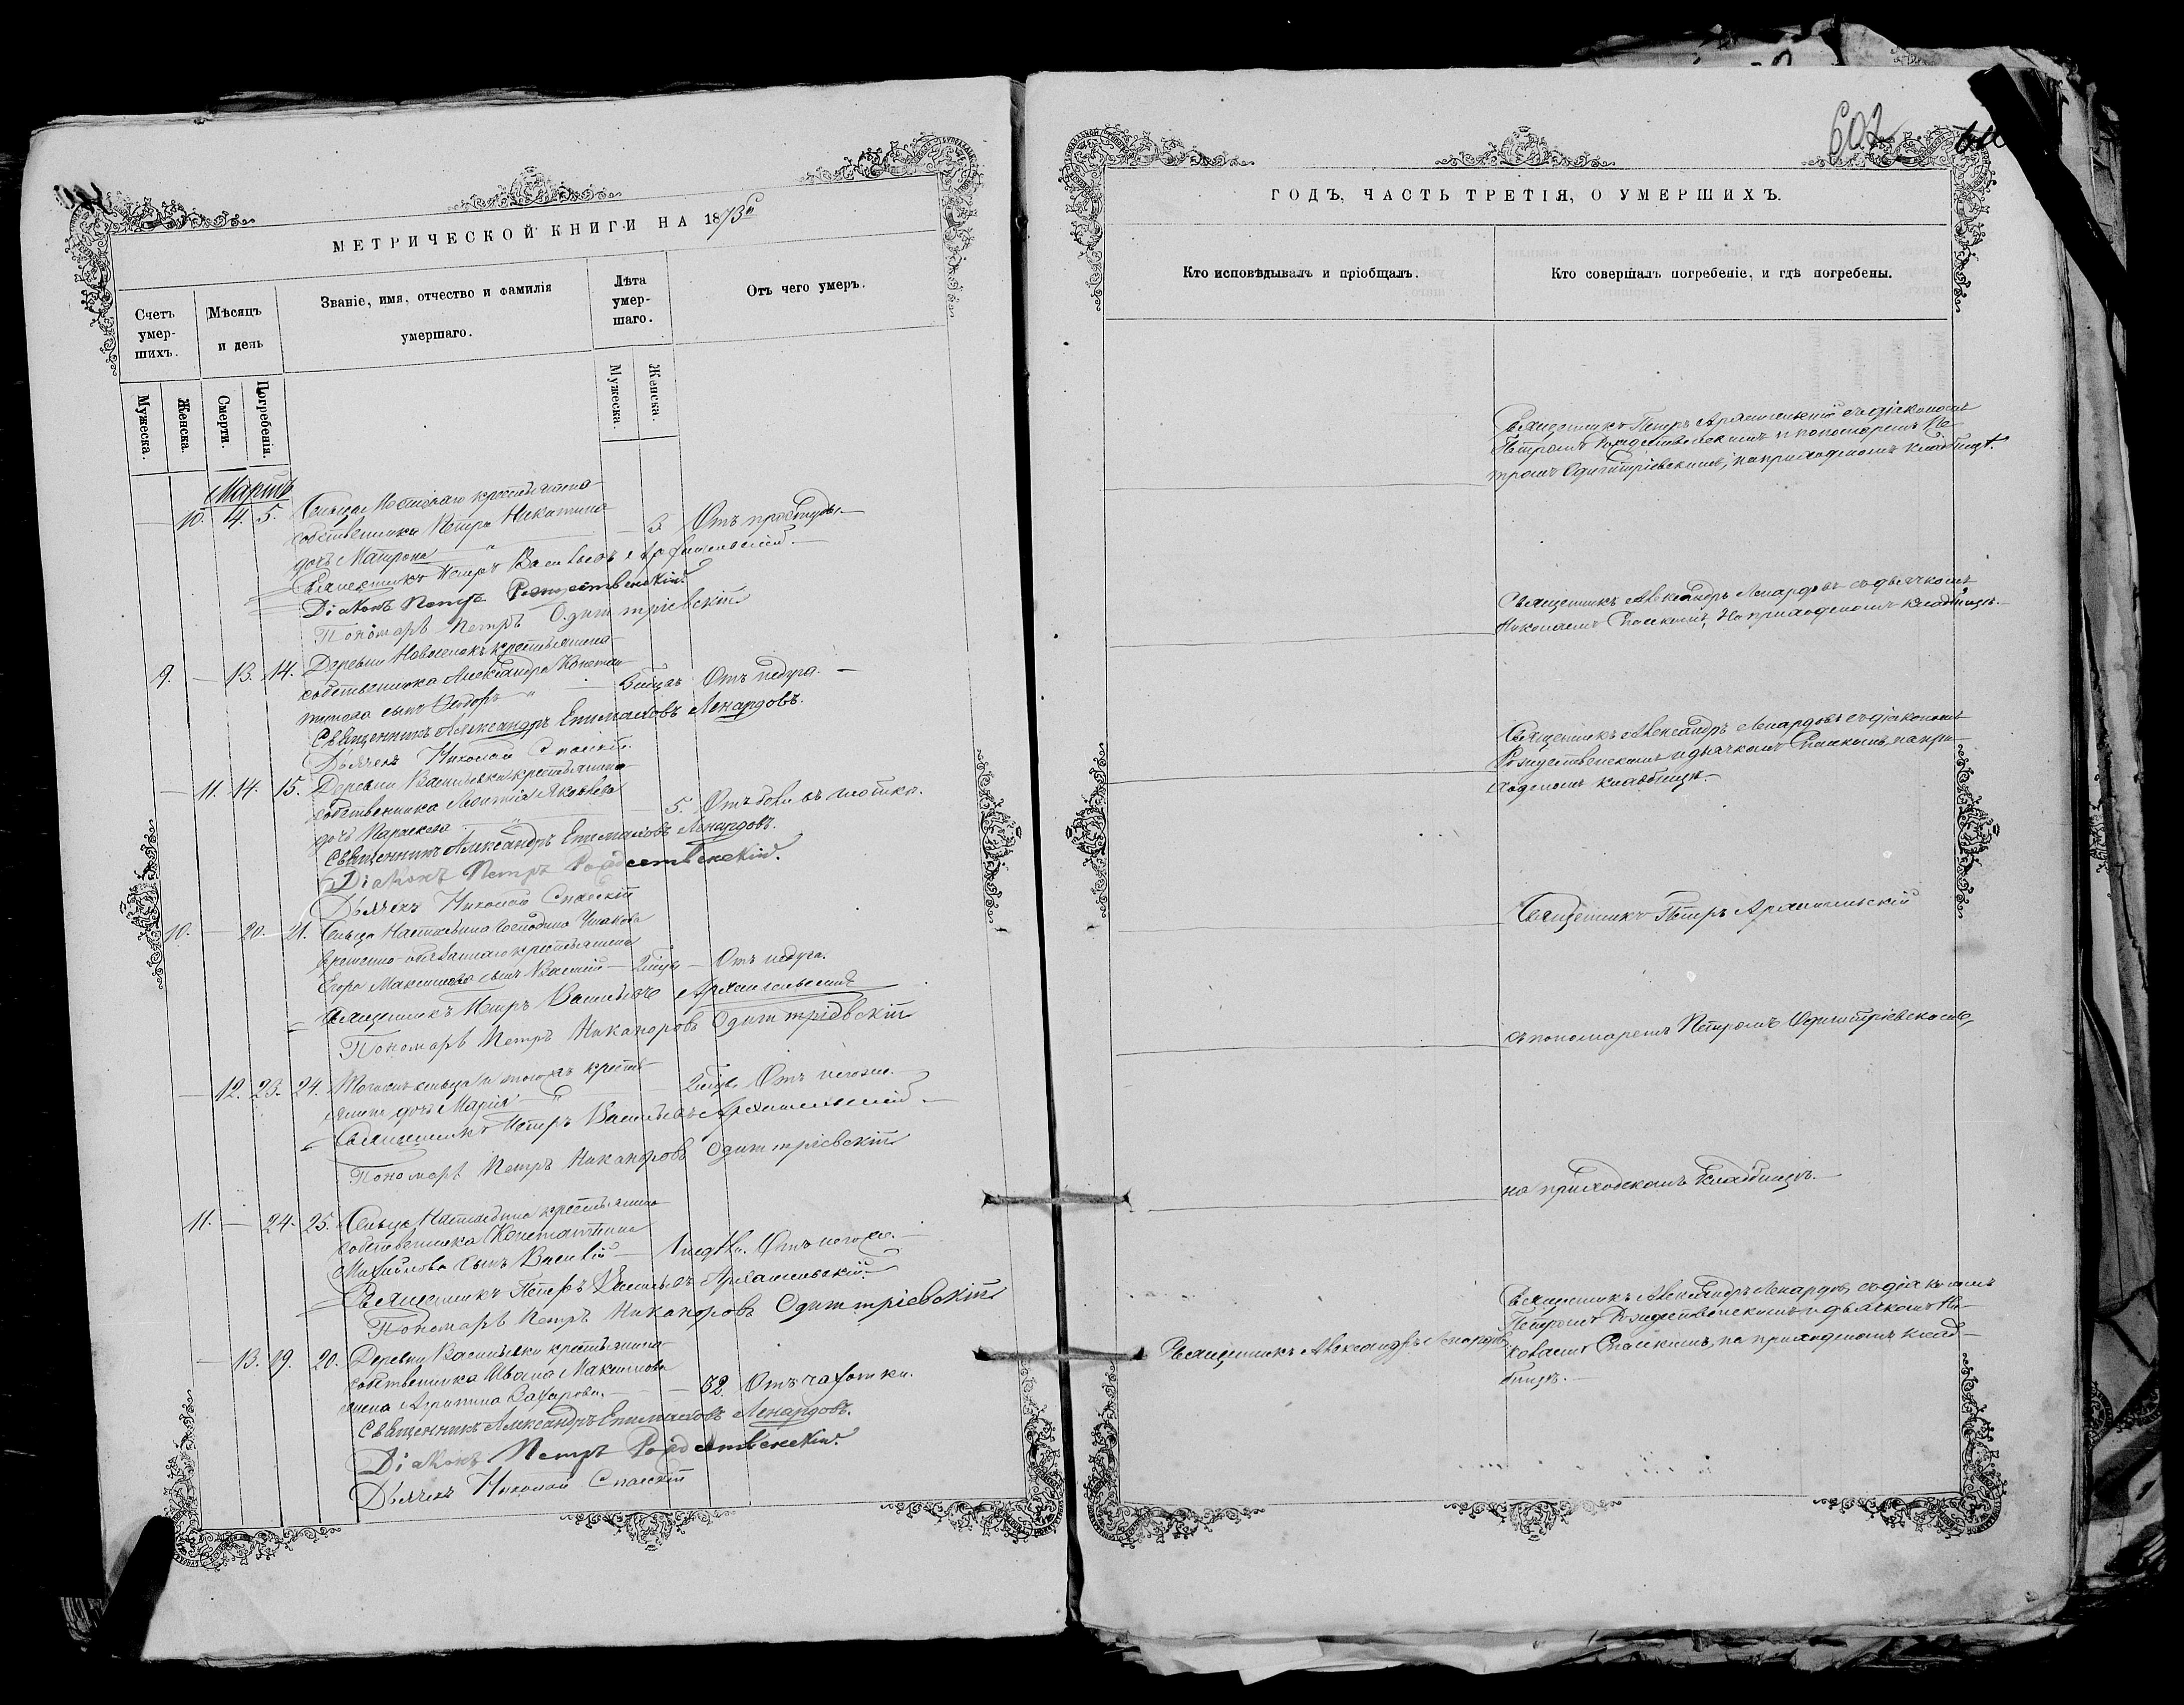 602
МЕТРИЧЕСКОЙ КНИГИ НА 1873й
Счетъ умер-шихъ.
Мѣсяцъ и день
Званіе, имя, отчество и фамилія умершаго.
Лѣта умер-шаго.
Отъ чего умеръ.
Мужеска.
Женска.
Смерти.
Погребенія.
Мужеска.
Женска.
Мартъ
10. 4. 5. Сельца крестьянина
собственника Петра Никитина
дочь Матрона — 3. Отъ простуды.
Священникъ Петръ Васильевъ Архангельскій.
Діаконъ Петръ Рождественскій.
Пономарь Петръ Одигитріевскій
9. — 13. 14. Деревни Новоселокъ крестьянина
собственника Александра Констан-
тинова сынъ Ѳеодоръ — Отъ недуга. —
Священникъ Александръ Епимаховъ Ленардовъ.
Дьячекъ Николай Спаскій.
— 11. 14. 15. Деревни Васильевки крестьянина
собственника Леонтія Яковлева
дочь Параскева — 5. Отъ боли въ глотки.
Священникъ Александръ Епимаховъ Ленардовъ.
Діаконъ Петръ Рождественскій.
Дьячекъ Николай Спаскій
10. — 20. 21. Сельца Настасьина Господина Ушакова
временно-обязаннаго крестьянина
Егора Максимова сынъ Василій — Отъ недуга.
Священникъ Петръ Васильевъ Архангельскій
Пономарь Петръ Никаноровъ Одигитріевскій
— 12. 23. 24. Тогожъ сельца и тогожъ кресть-
янина дочь Марія — Отъ тогоже.
Священникъ Петръ Васильевъ Архангельскій —
Пономарь Петръ Никаноровъ Одигитріевскій
11. — 24. 25. Сельца Настасьина крестьянина
собственника Константина
Михайлова сынъ Василій — 1 недѣли. Отъ тогоже. —
Священникъ Петръ Васильевъ Архангельскій.
Пономарь Петръ Никаноровъ Одигитріевскій
— 13. 19. 20. Деревни Васильевки крестьянина
собственника Ивана Максимова
жена Агрипина Захарова. — 32. Отъ чахотки.
Священникъ Александръ Епимаховъ Ленардовъ.
Діаконъ Петръ Рождественскій.
Дьячекъ Николай Спаскій
ГОДЪ, ЧАСТЬ ТРЕТІЯ, О УМЕРШИХЪ.
Кто исповѣдывалъ и пріобщалъ.
Кто совершалъ погребеніе, и гдѣ погребены.
Священникъ Петръ Архангельскій съ діакономъ
Петромъ Рождественскимъ и пономаремъ Пе-
тромъ Одигитріевскимъ, на приходскомъ кладбищѣ.
Священникъ Александръ Ленардовъ съ дьячкомъ
Николаемъ Спаскимъ, на приходскомъ кладбищѣ. —
Священникъ Александръ Ленардовъ съ діакономъ
Рождественскимъ и дьячкомъ Спаскимъ, на при-
ходскомъ кладбищѣ. —
Священникъ Петръ Архангельскій
съ пономаремъ Петромъ Одигитріевскимъ,
на приходскомъ кладбищѣ. —
Священникъ Александръ Ленардовъ
Священникъ Александръ Ленардовъ, съ діакономъ
Петромъ Рождественскимъ и дьячкомъ Ни-
колаемъ Спаскимъ, на приходскомъ клад-
бищѣ. —